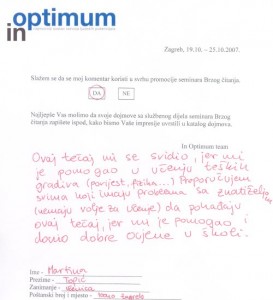 optimum
in
Zagreb, 19.10. – 25.10.2007.
Slažem se da se moj komentar koristi u svrhu promocije seminara Brzog čitanja.
DA
NE
Najljepše Vas molimo da svoje dojmove sa službenog dijela seminara Brzog
čitanja zapišete ispod, kako bismo Vaše impresije uvrstili u katalog dojmova.
In Optimum team
Ovaj tečaj mi se svidio, jer mi
je pomogao u učenju teških
gradiva (povijest, fizika...) Preporučujem
svima koji imaju problema sa znatiželjom
(nemaju volje za učenje) da pohađaju
ovaj tečaj, jer mi je pomogao i
donio dobre ocjene u školi.
Ime - Martina
Prezime - Topić
Zanimanje - učenica
Poštanski broj i mjesto - 10000 Zagreb